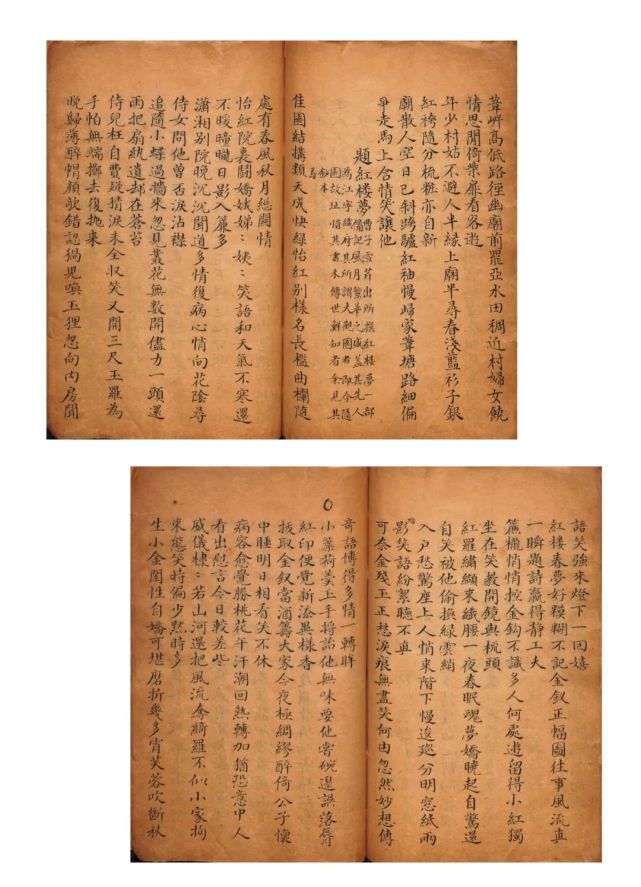 葦岍高低路徑幽廟前罷亞水田稠近村婦女饒
情思閒倚柴扉看客遊
年少村姑不避人半緣上廟半尋春淺藍衫子銀
紅袴隨分梳粧亦自新
廟散人空日已斜跨驢紅袖慢歸家葦塘路細偏
爭走馬上含情笑讓他
題紅樓夢
曹子雪芹出所撰紅樓夢一部
備記風月繁華之盛蓋其先人
為江寧織府其所謂大觀園者即今隨
園故址惜其書未傳世鮮知者余見其
鈔本焉
佳園結搆類天成快綠怡紅別樣名長檻曲欄隨
處有春風秋月總關情
怡紅院裏鬬嬌娥娣娣姨姨笑語和天氣不寒還
不暖曈曨日影入簾多
瀟湘別院晚沉沉聞道多情復病心悄向花陰尋
侍女問他曾否淚沾襟
追隨小蝶過墻來忽見叢花無數開儘力一頭還
兩把扇紈遺卻在蒼苔
侍兒枉自費疑猜淚未全収笑又開三尺玉羅為
手帕無端擲去復拋來
晚歸薄醉帽顏欹錯認猧兒喚玉狸忽向內房聞
語笑強來燈下一回嬉
紅樓春夢好糢糊不記金釵正幅圖往事風流真
一瞬題詩贏得靜工夫
簾櫳悄悄控金鈎不識多人何處遊留得小紅獨
坐在笑教開鏡與梳頭
紅羅繡纈束纖腰一夜春眠魂夢嬌曉起自驚還
自笑被他偷換綠雲綃
入戶愁驚座上人悄來階下慢逡廵分明窓紙兩
影笑語紛絮聽不真
可奈金殘玉正愁淚痕無盡笑何由忽然妙想傳
奇語博得多情一轉眸
小葉荷羹玉手將詒他無味要他嘗碗邊誤落唇
紅印便覺新添異樣香
拔取金釵當酒籌大家今夜極綢繆醉倚公子懷
中睡明日相看笑不休
病容愈覺勝桃花午汗潮回熱轉加猶恐意中人
看出慰言今日較差些
威儀棣棣若山河還把風流奪綺羅不似小家拘
束態笑時偏少默時多
生小金閨性自嬌可堪磨折幾多宵芙蓉吹斷秋